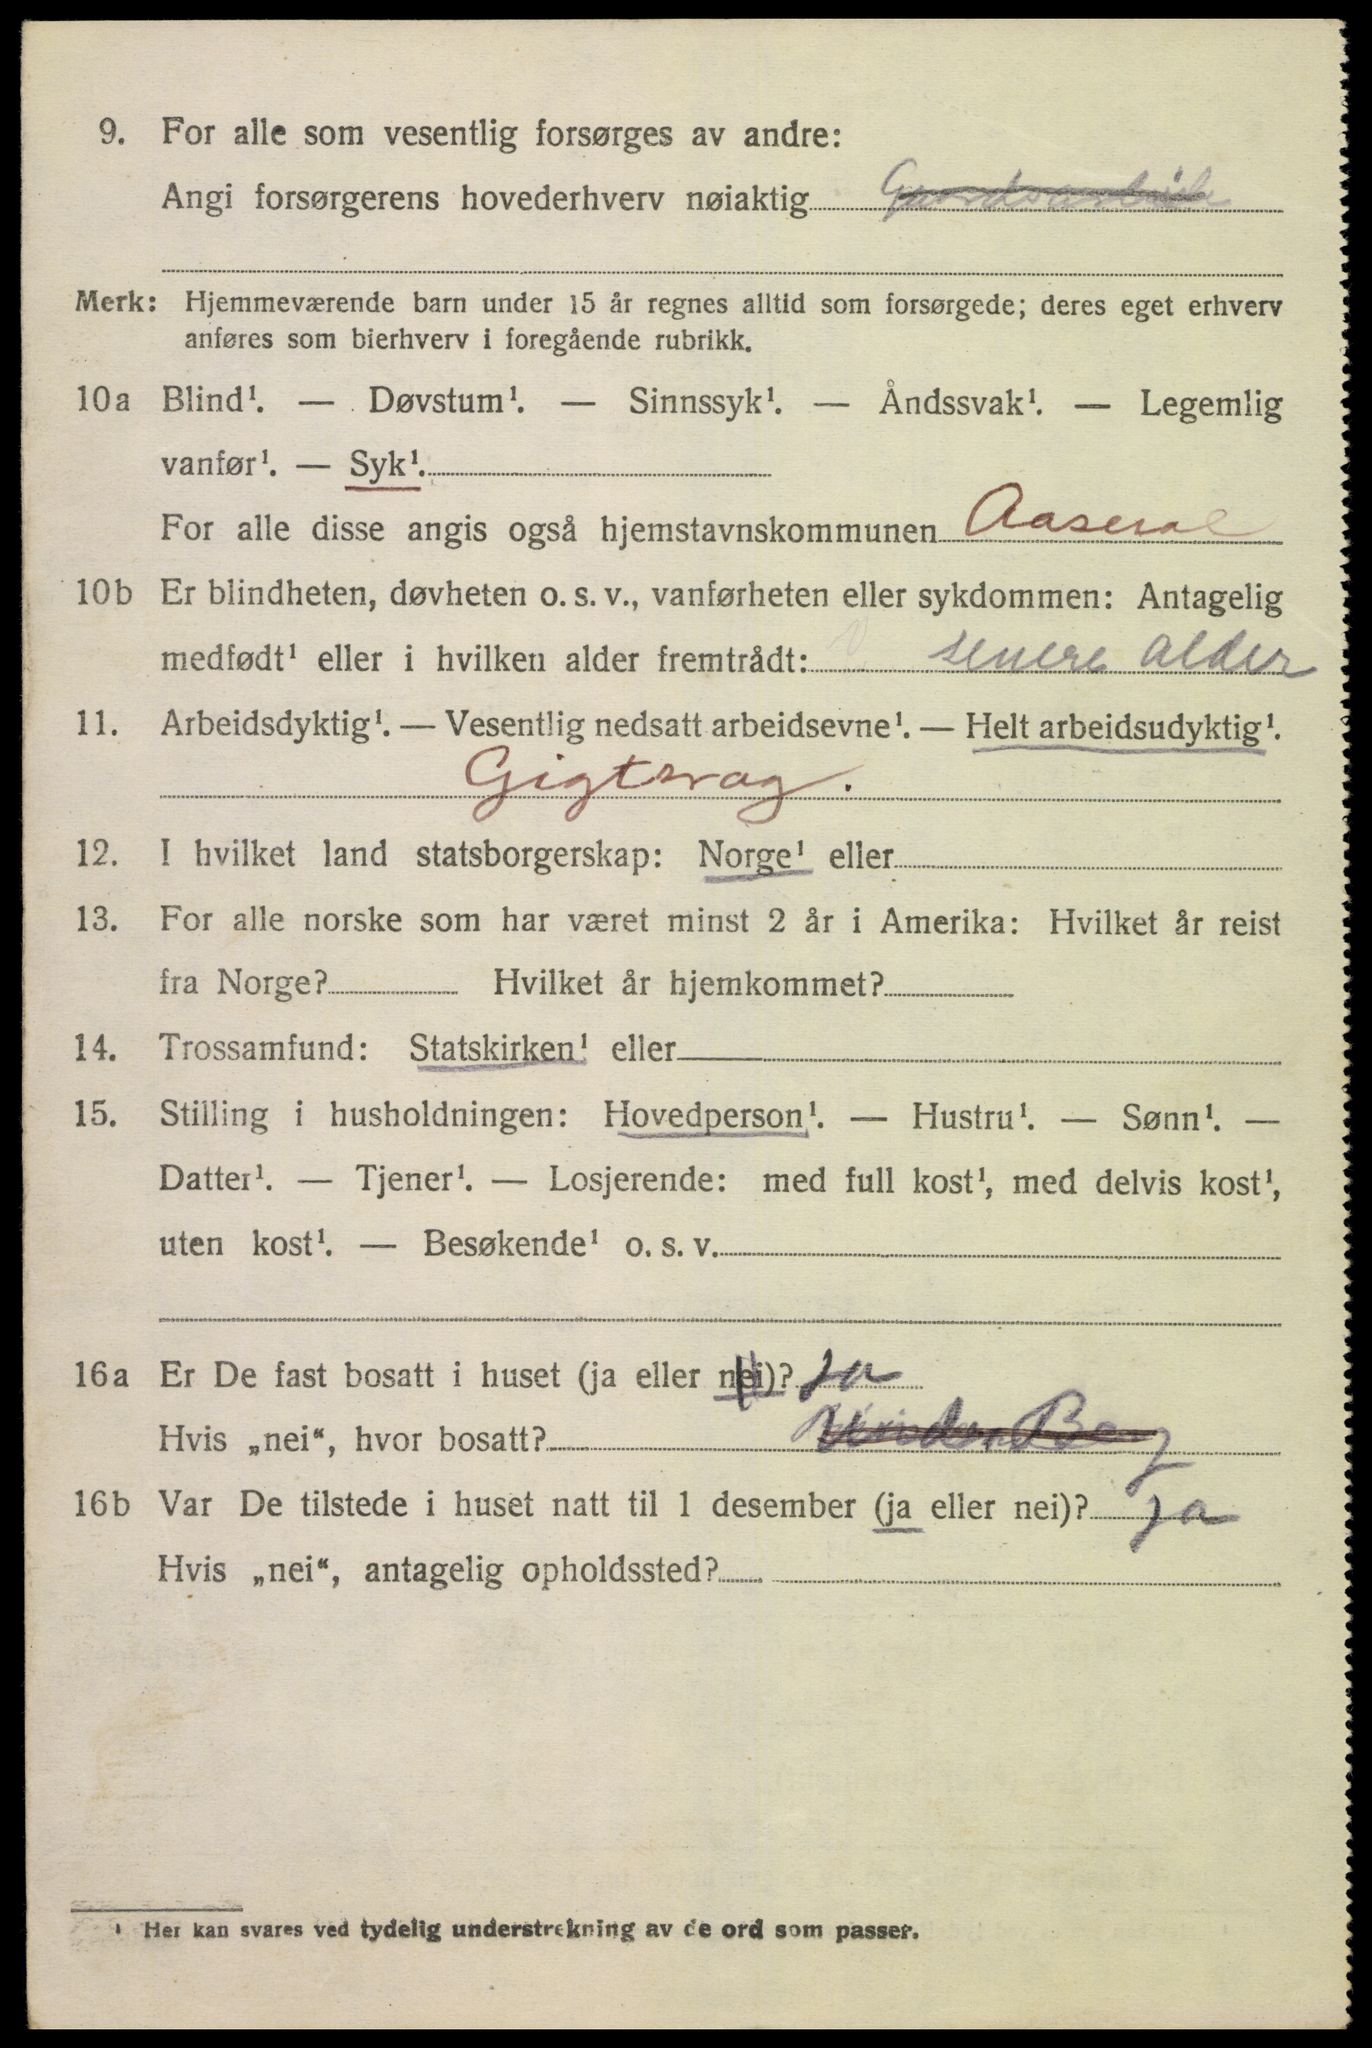 9. For alle som vesentlig forsørges av andre:
Angi forsørgerens hovederhverv nøiaktig Gaardsarbeide
Merk: Hjemmeværende barn under 15 år regnes alltid som forsørgede; deres eget erhverv
anføres som bierhverv i foregående rubrikk.
10a Blind¹. — Døvstum¹. — Sinnssyk¹. — Åndssvak¹. — Legemlig
vanfør¹. — Syk¹.
For alle disse angis også hjemstavnskommunen Aaseral
10b Er blindheten, døvheten o. s. v., vanførheten eller sykdommen: Antagelig
medfødt¹ eller i hvilken alder fremtrådt: senere alder
11. Arbeidsdyktig¹. — Vesentlig nedsatt arbeidsevne¹. — Helt arbeidsudyktig¹.
Gigtsvag.
12. I hvilket land statsborgerskap: Norge¹ eller
13. For alle norske som har været minst 2 år i Amerika: Hvilket år reist
fra Norge? Hvilket år hjemkommet?
14. Trossamfund: Statskirken¹ eller
15. Stilling i husholdningen: Hovedperson¹. — Hustru¹. — Sønn¹. —
Datter¹. — Tjener¹. — Losjerende: med full kost¹, med delvis kost¹,
uten kost¹. — Besøkende¹ o. s. v.
16a Er De fast bosatt i huset (ja eller nei)? Ja
Hvis „nei“, hvor bosatt? Berg
16b Var De tilstede i huset natt til 1 desember (ja eller nei)? Ja
Hvis „nei“, antagelig opholdssted?
¹ Her kan svares ved tydelig understrekning av de ord som passer.